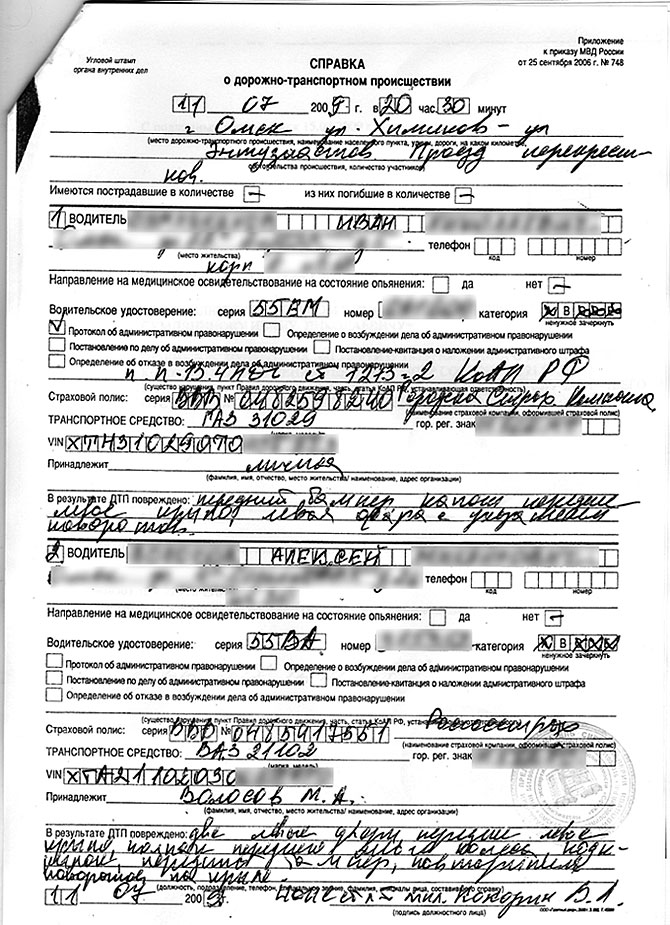 Угловой штамп
органа внутренних дел
Приложение
к приказу МВД России
от 25 сентября 2006 г. № 748
СПРАВКА
о дорожно-транспортном происшествии
11 07 2009 г. в 20 час. 30 минут
г Омск ул. Химиков - ул
(место дорожно-транспортного происшествия, наименование населенного пункта, улицы, дороги, на каком километре,
Энтузиастов Проезд перекрест-
обстоятельства происшествия, количество участников)
ков.
Имеются пострадавшие в количестве – из них погибшие в количестве –
1 ВОДИТЕЛЬ ИВАН
телефон
(место жительства) код номер
корп
Направление на медицинское освидетельствование на состояние опьянения: да нет
Водительское удостоверение: серия 55ВМ номер категория В
ненужное зачеркнуть
V Протокол об административном правонарушении Определение о возбуждении дела об административном правонарушении
Постановление по делу об административном правонарушении Постановление-квитанция о наложении административного штрафа
Определение об отказе в возбуждении дела об административном правонарушении
КоАП РФ
(существо нарушения, пункт Правил дорожного движения, часть, статья КоАП РФ, устанавливающая ответственность)
Страховой полис: серия ВВВ №
(наименование страховой компании, оформившей страховой полис)
ТРАНСПОРТНОЕ СРЕДСТВО: ГАЗ 31029 гор. рег. знак
(марка, модель)
VIN
Принадлежит личная
(фамилия, имя, отчество, место жительства/ наименование, адрес организации)
В результате ДТП повреждено: передний бампер капот переднее
левое крыло, левая фара с указателем
поворотов.
2 ВОДИТЕЛЬ АЛЕКСЕЙ
телефон
код номер
Направление на медицинское освидетельствование на состояние опьянения: да нет
Водительское удостоверение: серия 55ВА номер категория В
ненужное зачеркнуть
Протокол об административном правонарушении Определение о возбуждении дела об административном правонарушении
Постановление по делу об административном правонарушении Постановление-квитанция о наложении административного штрафа
Определение об отказе в возбуждении дела об административном правонарушении
(существо нарушения, пункт Правил дорожного движения, часть, статья КоАП РФ, устанавливающая ответственность)
Страховой полис: серия ВВВ № Росгосстрах
(наименование страховой компании, оформившей страховой полис)
ТРАНСПОРТНОЕ СРЕДСТВО: ВАЗ 21102 гор. рег. знак
(марка, модель)
VIN
Принадлежит Волосов М.А.
(фамилия, имя, отчество, место жительства/ наименование, адрес организации)
В результате ДТП повреждено: две левые двери переднее левое
крыло, колпак переднего левого колеса
передний бампер, повторитель
поворотов на крыле.
11 07 2009 мил. Кокорин В.Л.
(должность, подразделение, телефон, специальное звание, фамилия, инициалы лица, составившего справку)
(подпись должностного лица)